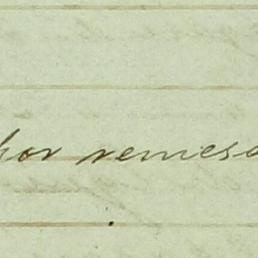 por remesa